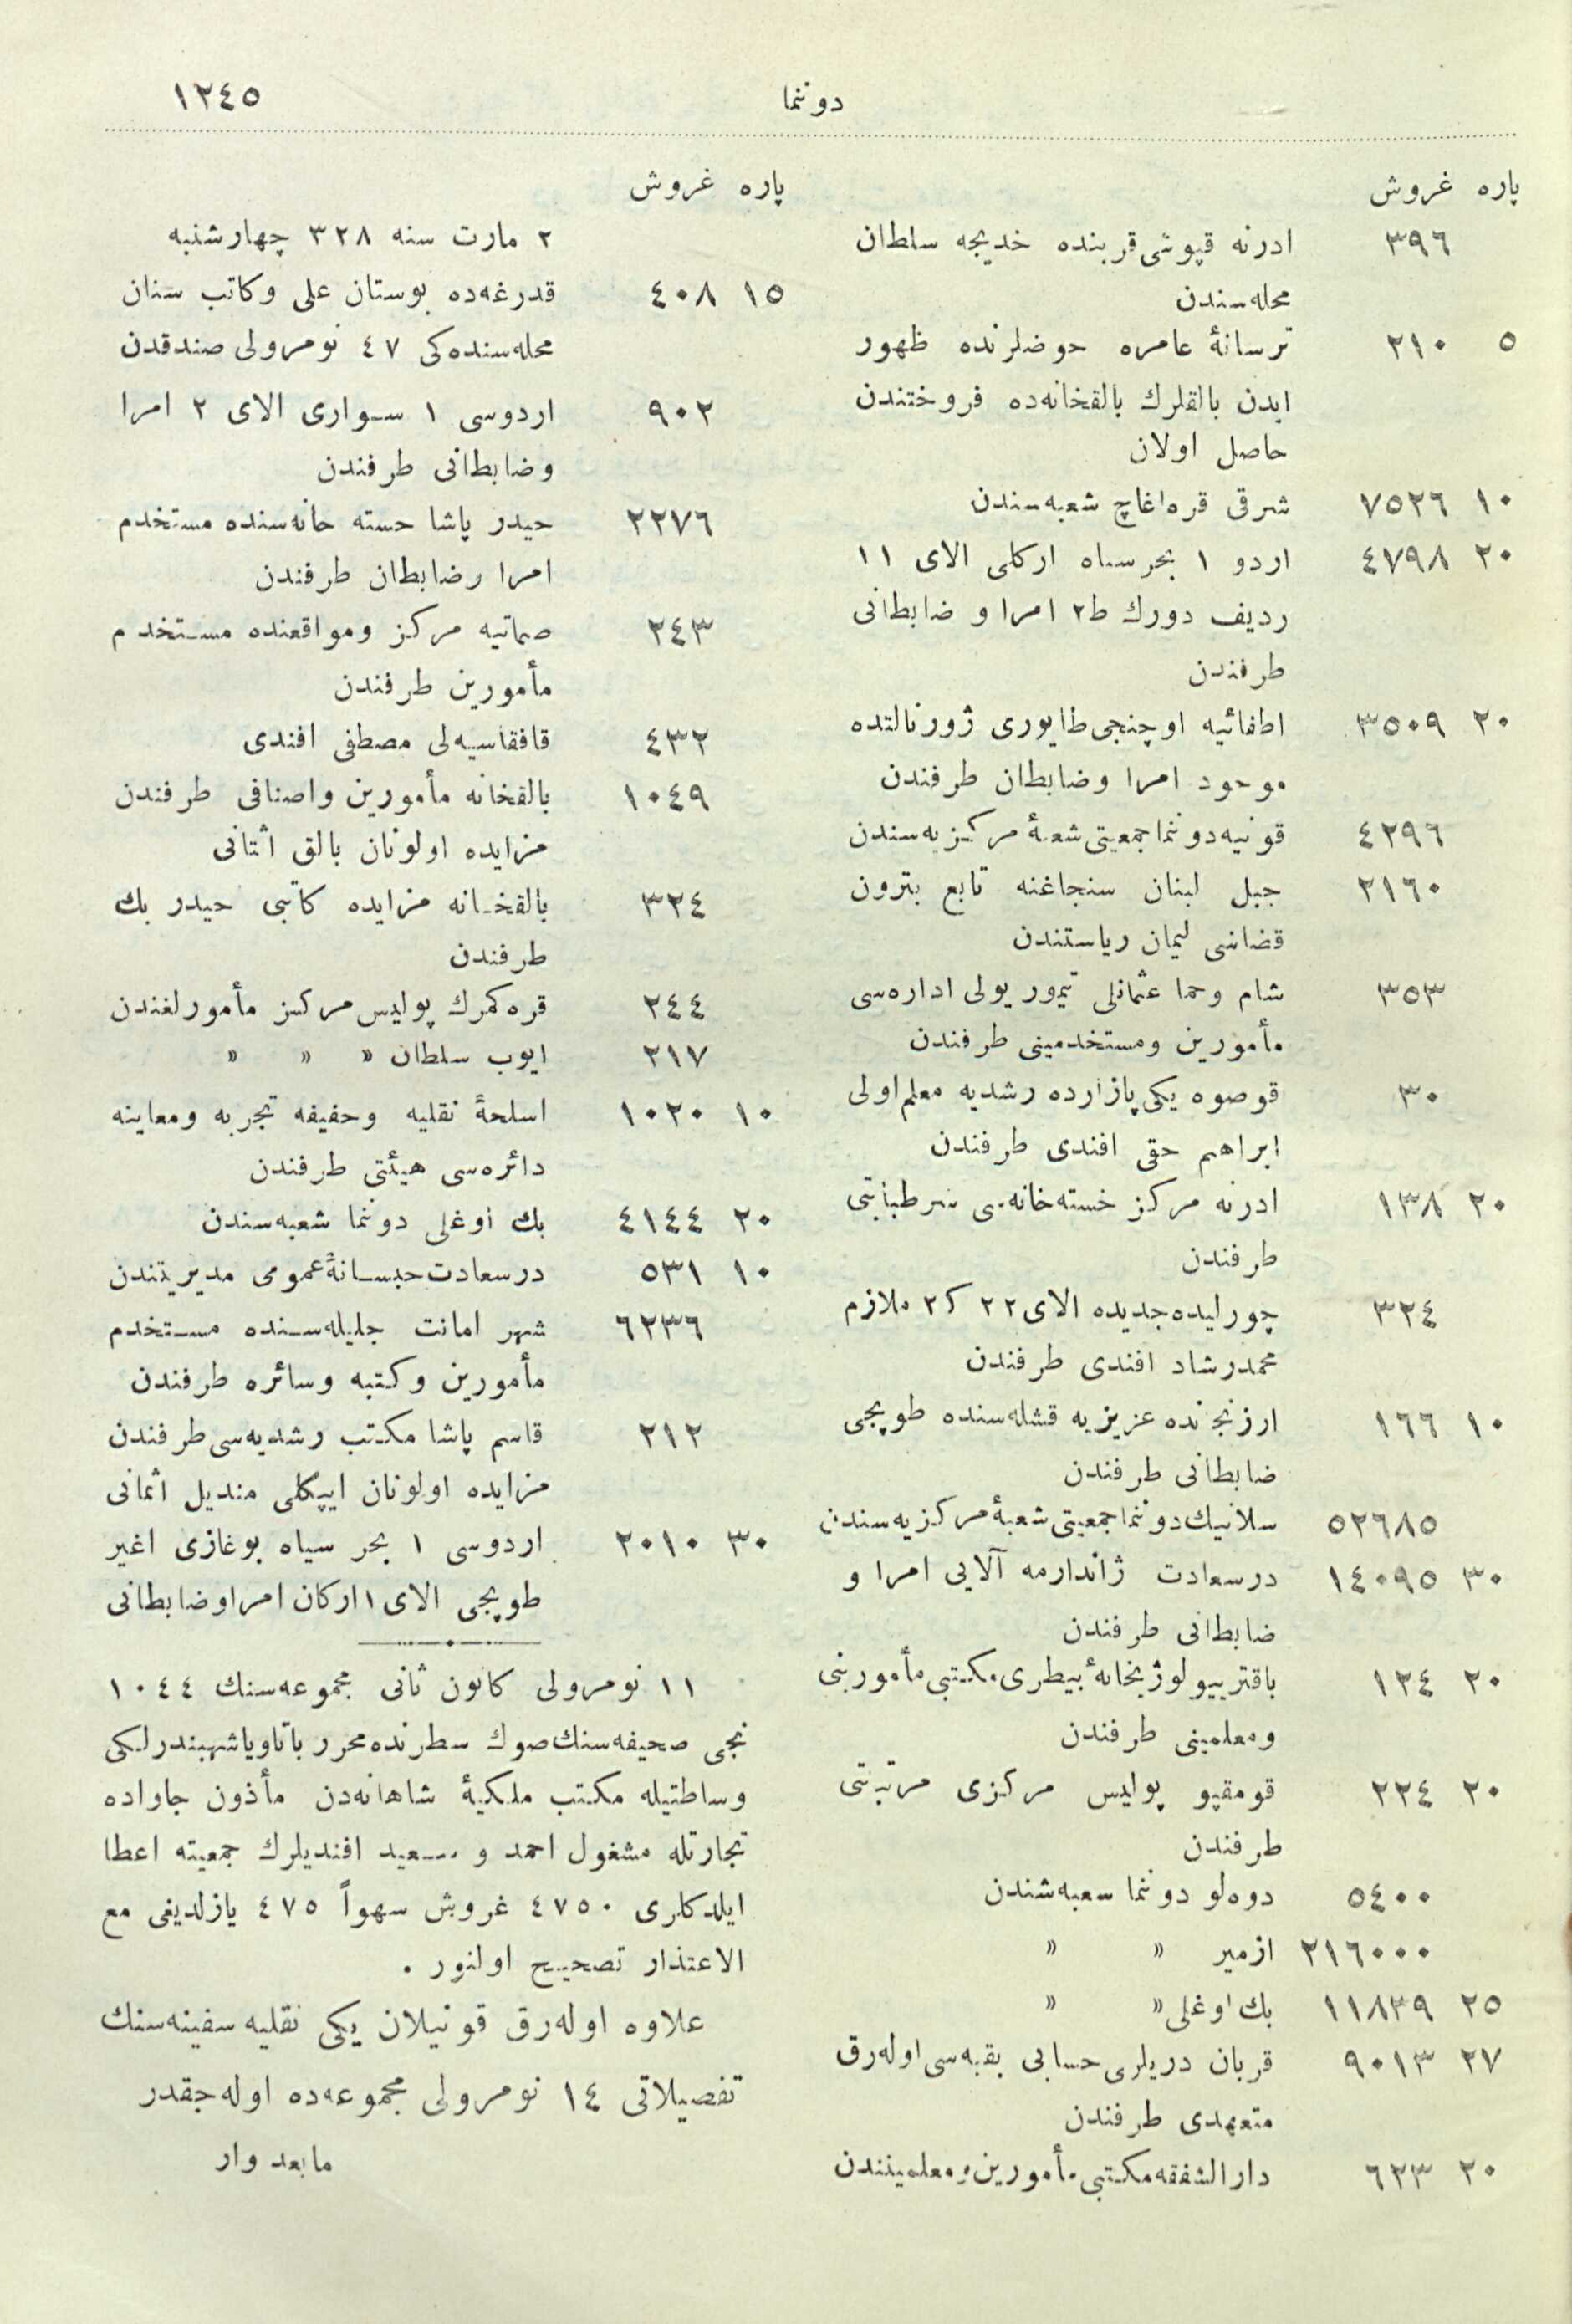 دوننما
١٢٤٥
پاره غروش
٣٩٦ ادرنه قپوشی قربنده خدیجه سلطان
محله‌سندن
٥ ٢١٠ ترسانهٔ عامره حوضلرنده ظهور
ایدن بالقلرك بالقخانه‌ده فروختندن
حاصل اولان
١٠ ٧٥٢٦ شرقی قره‌اغاچ شعبه‌سندن
٢٠ ٤٧٩٨ اردو ١ بحرسیاه اركلی الای ١١
ردیف دورك ط٢ امرا و ضابطانی
طرفندن
٢٠ ٣٥٠٩ اطفائیه اوچنجی طابوری ژورنالنده
موجود امرا وضابطان طرفندن
٤٢٩٦ قونیه دوننما جمعیتی شعبهٔ مركزیه‌سندن
٢١٦٠ جبل لبنان سنجاغنه تابع بترون
قضاسی لیمان ریاستندن
٣٥٣ شام وحما عثمانلی تیمور یولی اداره‌سی
مأمورین ومستخدمینی طرفندن
٣٠ قوصوه یكی پازارده رشدیه معلم اولی
ابراهیم حقی افندی طرفندن
٢٠ ١٣٨ ادرنه مركز خسته‌خانه‌سی سرطبابتی
طرفندن
٣٢٤ چورلیده جدیده الای ٢٢ ك ٢ ملازم
محمدرشاد افندی طرفندن
١٠ ١٦٦ ارزنجانده عزیزیه قشله‌سنده طوپجی
ضابطانی طرفندن
٥٢٦٨٥ سلانیك دوننما جمعیتی شعبهٔ مركزیه‌سندن
٣٠ ١٤٠٩٥ درسعادت ژاندارمه آلایی امرا و
ضابطانی طرفندن
٢٠ ١٢٤ باقتریولوژیخانهٔ بیطری مكتبی مأمورینی
ومعلمینی طرفندن
٢٠ ٢٢٤ قومقپو پولیس مركزی مرتباتی
طرفندن
٥٤٠٠ دوه‌لو دوننما شعبه‌سندن
٢١٦٠٠٠ ازمیر » »
٢٥ ١١٨٣٩ بك اوغلی » »
٢٧ ٩٠١٣ قربان دریلری حسابی بقیه‌سی اوله‌رق
متعهدی طرفندن
٢٠ ٦٢٣ دارالشفقه مكتبی مأمورین ومعلمیندن
پاره غروش
٢ مارت سنه ٣٢٨ چهارشنبه
١٥ ٤٠٨ قدرغه‌ده بوستان علی وكاتب سنان
محله‌سنده‌كی ٤٧ نومرولی صندقدن
٩٠٢ اردوسی ١ سواری الای ٢ امرا
وضابطانی طرفندن
٢٢٧٦ حیدر پاشا خسته خانه‌سنده مستخدم
امرا وضابطان طرفندن
٢٤٣ صماتیه مركز ومواقعنده مستخدم
مأمورین طرفندن
٤٣٢ قافقاسیه‌لی مصطفی افندی
١٠٤٩ بالقخانه مأمورین واصنافی طرفندن
مزایده اولونان بالق اثمانی
٣٢٤ بالقخانه مزایده كاتبی حیدر بك
طرفندن
٢٤٤ قره‌كمرك پولیس مركز مأمورلغندن
٢١٧ ایوب سلطان » » »
١٠ ١٠٢٠ اسلحهٔ نقلیه وخفیفه تجربه ومعاینه
دائره‌سی هیئتی طرفندن
٢٠ ٤١٤٤ بك اوغلی دوننما شعبه‌سندن
١٠ ٥٣١ درسعادت حبسخانهٔ عمومی مدیریتندن
٦٢٣٦ شهر امانت جلیله‌سنده مستخدم
مأمورین وكتبه وسائره طرفندن
٢١٢ قاسم پاشا مكتب رشدیه‌سی طرفندن
مزایده اولونان ایپكلی مندیل اثمانی
٣٠ ٢٠١٠ اردوسی ١ بحر سیاه بوغازی اغیر
طوپجی الای ١ اركان امرا وضابطانی
١١ نومرولی كانون ثانی مجموعه‌سنك ١٠٤٤
نجی صحیفه‌سنك صوك سطرنده محرر باتاویا شهبندرلكی
وساطتیله مكتب ملكیهٔ شاهانه‌دن مأذون جاواده
تجارتله مشغول احمد و سعید افندیلرك جمعیته اعطا
ایلدكلری ٤٧٥٠ غروش سهواً ٤٧٥ یازلدیغی مع
الاعتذار تصحیح اولنور .
علاوه اوله‌رق قونیلان یكی نقلیه سفینه‌سنك
تفصیلاتی ١٤ نومرولی مجموعه‌ده اوله‌جقدر
مابعد وار